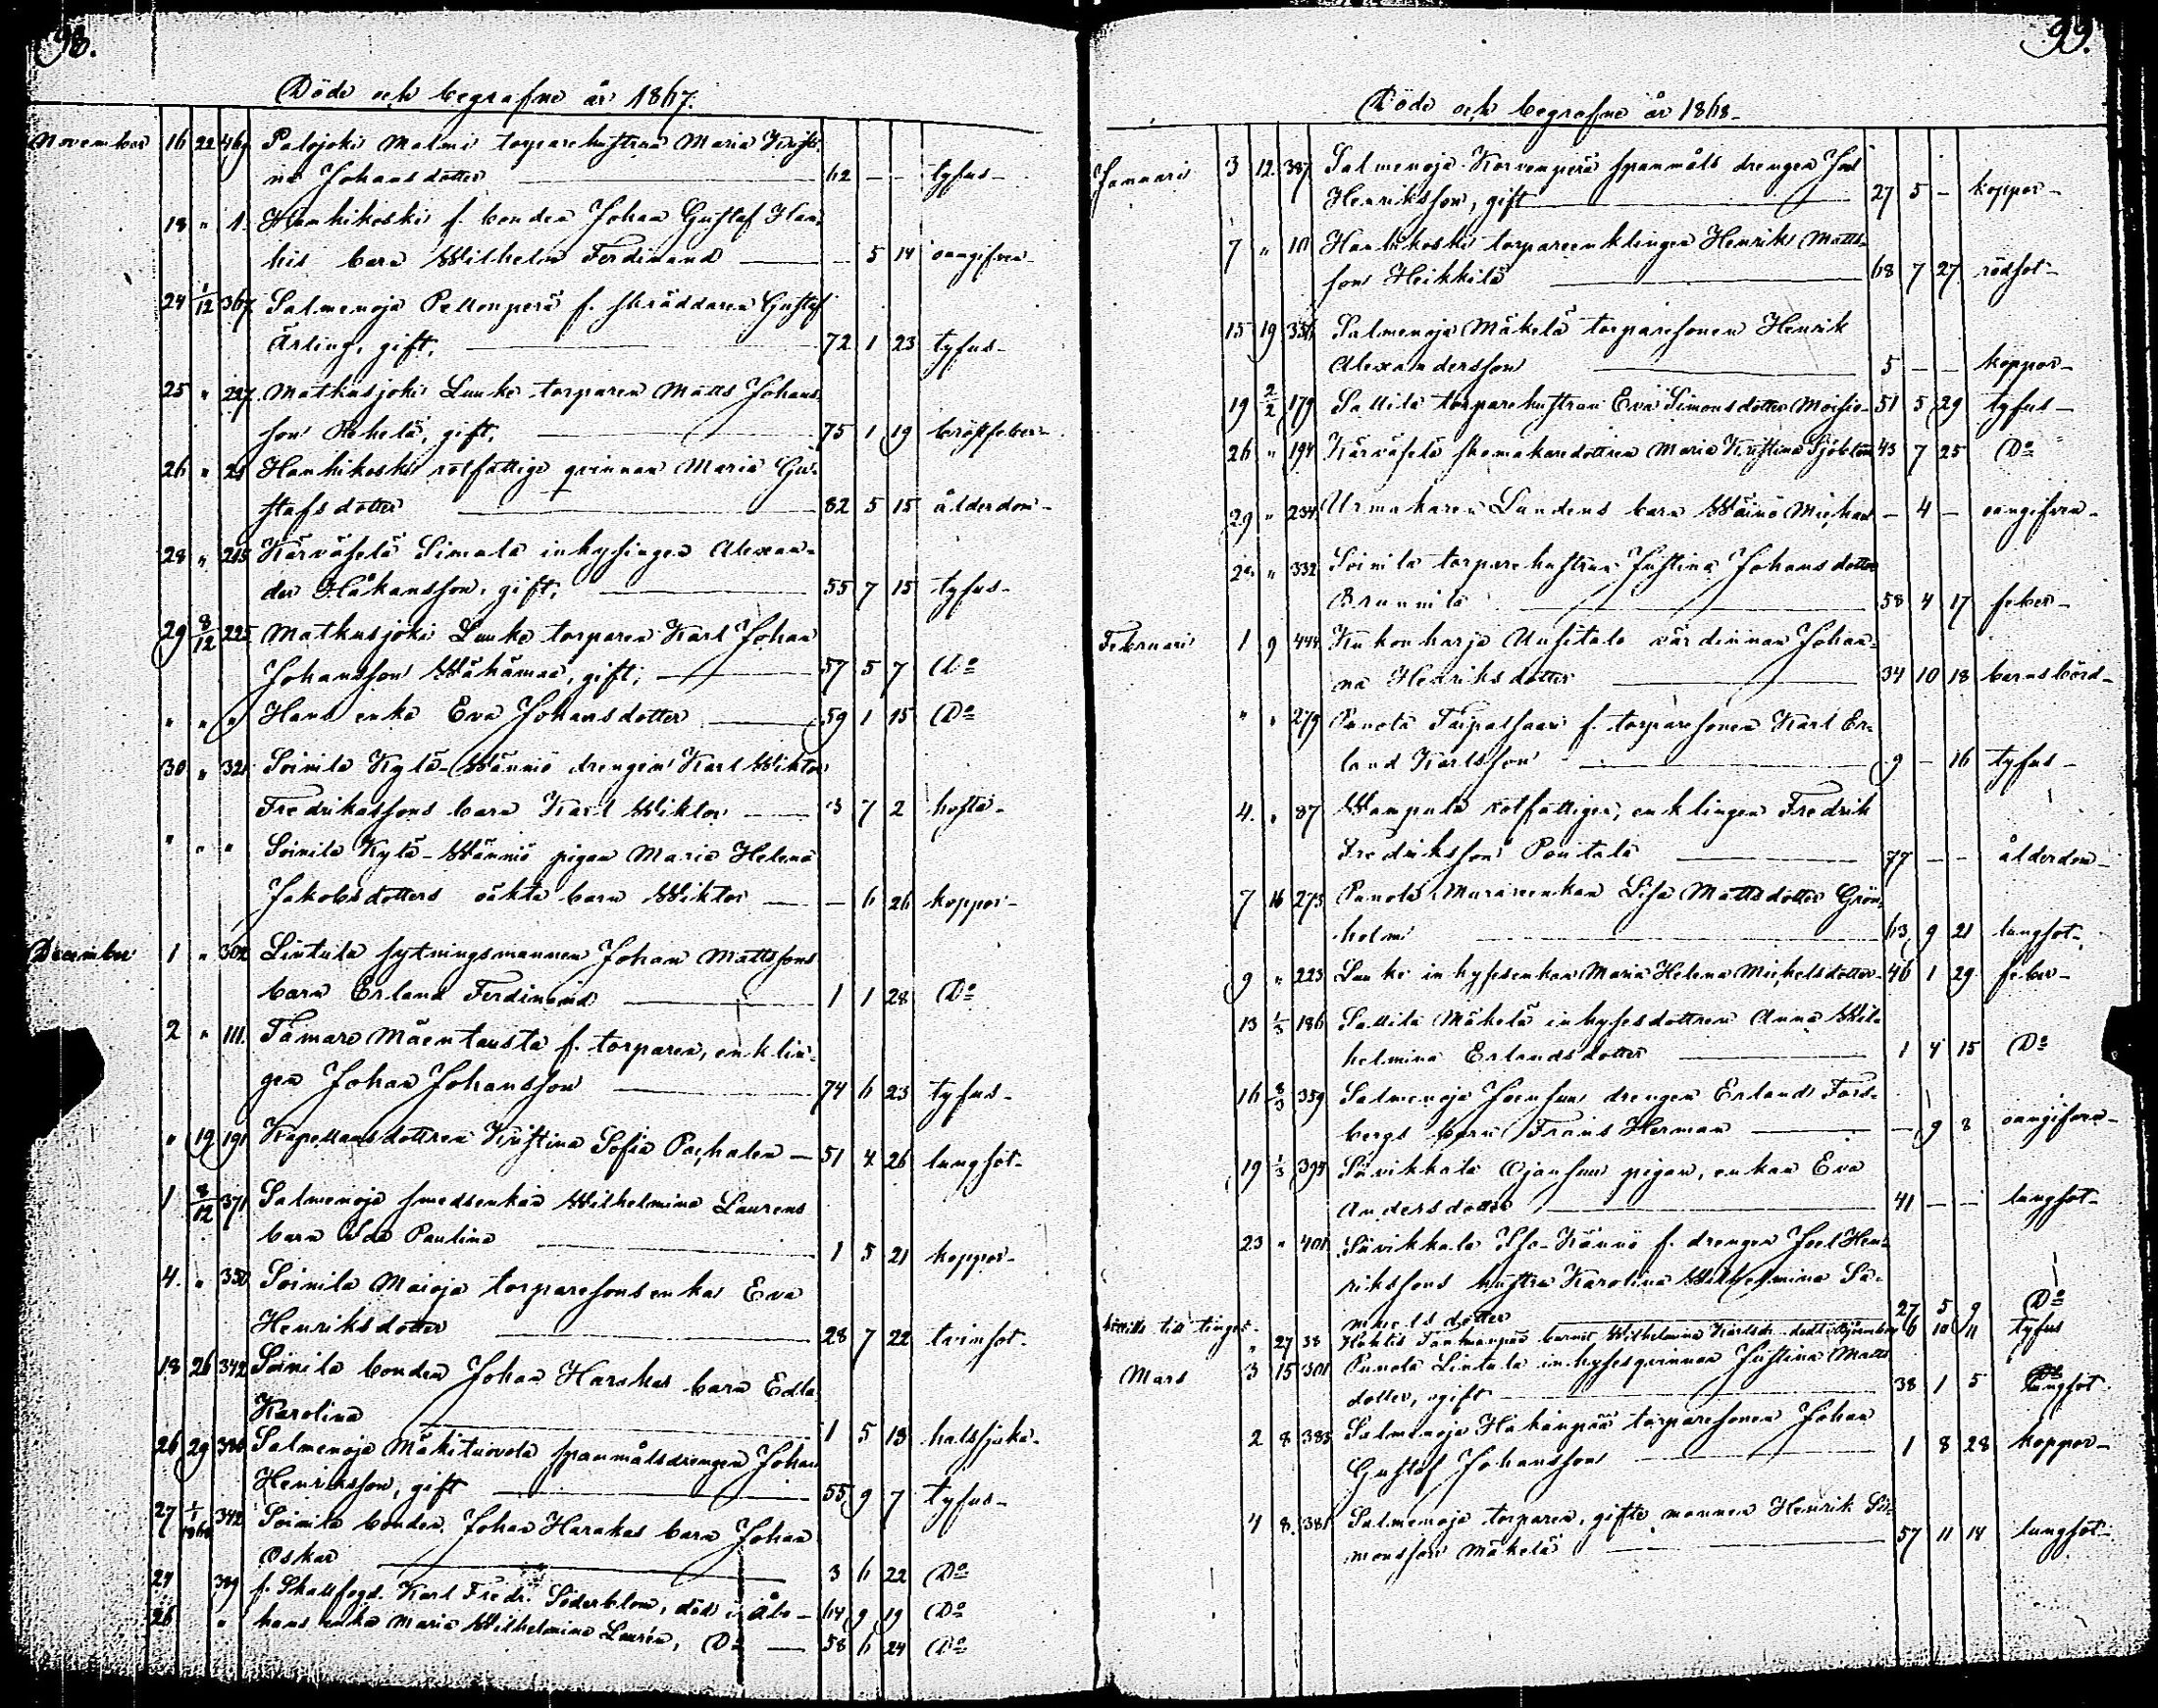 98.
Döde och begrafne år 1867.
November 16 22 469 Palojoki Malmi torparehustrun Maria Kristi-
na Johansdotter 62 — — tyfus
18 " 1. Hanhikoski f. bonden Johan Gustaf Han-
his barn Wilhelm Ferdinand — 5 14 oangifven
24 1/12 367 Salmenoja Pellonperä f. skräddaren Gustaf
Ärling, gift, 72 1 23 tyfus
25 " 227 Matkusjoki Lunke torparen Matts Johans-
son gift, 75 1 19 bröstfeber
26 " 21 Hanhikoski rotfattige qvinnan Maria Gu-
stafsdotter 82 5 15 ålderdom
28 " 215 Kärväselä Simala inhysingen Alexan-
der Håkansson, gift, 55 7 15 tyfus
29 8/12 225 Matkusjoki Lunke torparen Karl Johan
Johansson Wähämaa, gift, 57 5 7 Do
" " " Hans enka Eva Johansdotter 59 1 15 Do
30 " 321 Soinila Kylä-Wännio drengen Karl Wiktor
Fredrikssons barn Karl Wiktor 3 7 2 hosta
" " " Soinila Kylä-Wännio pigan Maria Helena
Jakobsdotters oäkta barn Wiktor — 6 26 koppor
December 1 " 302 Lintula sytningsmannen Johan Mattssons
barn Erland Ferdinand 1 1 28 Do
2 " 111. Tamare Mäentausta f. torparen, enklin-
gen Johan Johansson 74 6 23 tyfus
" 19 191 Kapellansdottren Kristina Sofia Pachalen — 51 4 26 lungsot
1 8/12 371 Salmenoja smedsenkan Wilhelmina Laurens
barn Ida Paulina 1 5 21 koppor
4. " 350 Soinila Maioja torparesonsenkan Eva
Henriksdotter 28 7 22 tvinsot
18 26 342 Soinila bonden Johan Harakas barn Edla
Karolina 1 5 13 halssjuka
26 29 380 Salmenoja Mäkituovola spanmålsdrengen Johan
Henriksson, gift 55 9 7 tyfus
27 1/1868 342 Soinila bonden Johan Harakas barn Johan
Oskar 3 6 22 Do
24 389 f. Skallfogd. Karl Fredr. Söderblom, död i Åbo — 64 9 19 Do
26 " hans enka Maria Wilhelmina Laurén, Do — 58 6 24 Do
99.
Döde och begrafne år 1868
Januari 3 12 387 Salmenoja Korvenperä spanmåls drengen
Henriksson, gift 27 5 — koppor
7 " 10 Hanhikoski torpareenklingen Henrik Matts-
son Heikkilä 68 7 27 rödsot
15 19 Salmenoja Mäkelä torparesonen Henrik
Alexandersson 5 — — koppor
19 2/2 179 Sallila torparehustrun Eva Simonsdotter Moisio 51 5 29 tyfus
26 " 194 Kärväselä skomakaredottren Maria Kristina Sjöblom 43 7 25 Do
29 " 234 Urmakaren Lundens barn Wäinö Michael — 4 — oangifven
" 332 Soinila torparehustrun Justina Johansdotter
Brunnila 58 4 17 feber
Februari 1 9 444 Kukonharja Uusitalo värdinnan Johan-
na Henriksdotter 34 10 18 barnsbörd
" " 279 Punola Taipalsaari f. torparesonen Karl Er-
land Karlsson 9 — 16 tyfus
4. " 87 Wampula rotfattigen, enklingen Fredrik
Fredriksson Poutala 77 — — ålderdom
7 16 273 Punola Murareenkan Lisa Mattsdotter Grön-
holm 63 9 21 lungsot
9 " 223 Lunke inhysesenkan Maria Helena Michelsdotter 46 1 29 feber
13 1/3 186 Sallila Mäkelä inhysesdottren Anna Wil-
helmina Erlandsdotter 1 4 15 Do
16 8/3 359 Salmenoja Joensuu drengen Erland Fors-
bergs barn Frans Herman — 9 8 oangifven
19 1/3 395 Sävikkala Ojansuu pigan, enkan Eva
Andersdotter 41 — — lungsot
23 " 401 Sävikkala Iso-Kännö f. drengen Joel Hen-
rikssons hustru Karolina Wilhelmina Sa-
muelsdotter 27 5 9 Do
till tinget. " 27 38 barnet Wilhelmina Karlsdr. 6 10 11 tyfus
Mars 3 15 301 Punola Lintula inhysesqvinnan Justina Matts
dotter, ogift 38 1 5 lungsot
2 8 383 Salmenoja Hakanpää torparesonen Johan
Gustaf Johansson 1 8 28 koppor
4 8. 381 Salmenoja torparen, gifte mannen Henrik Si-
monsson Mäkelä 57 11 14 lungsot